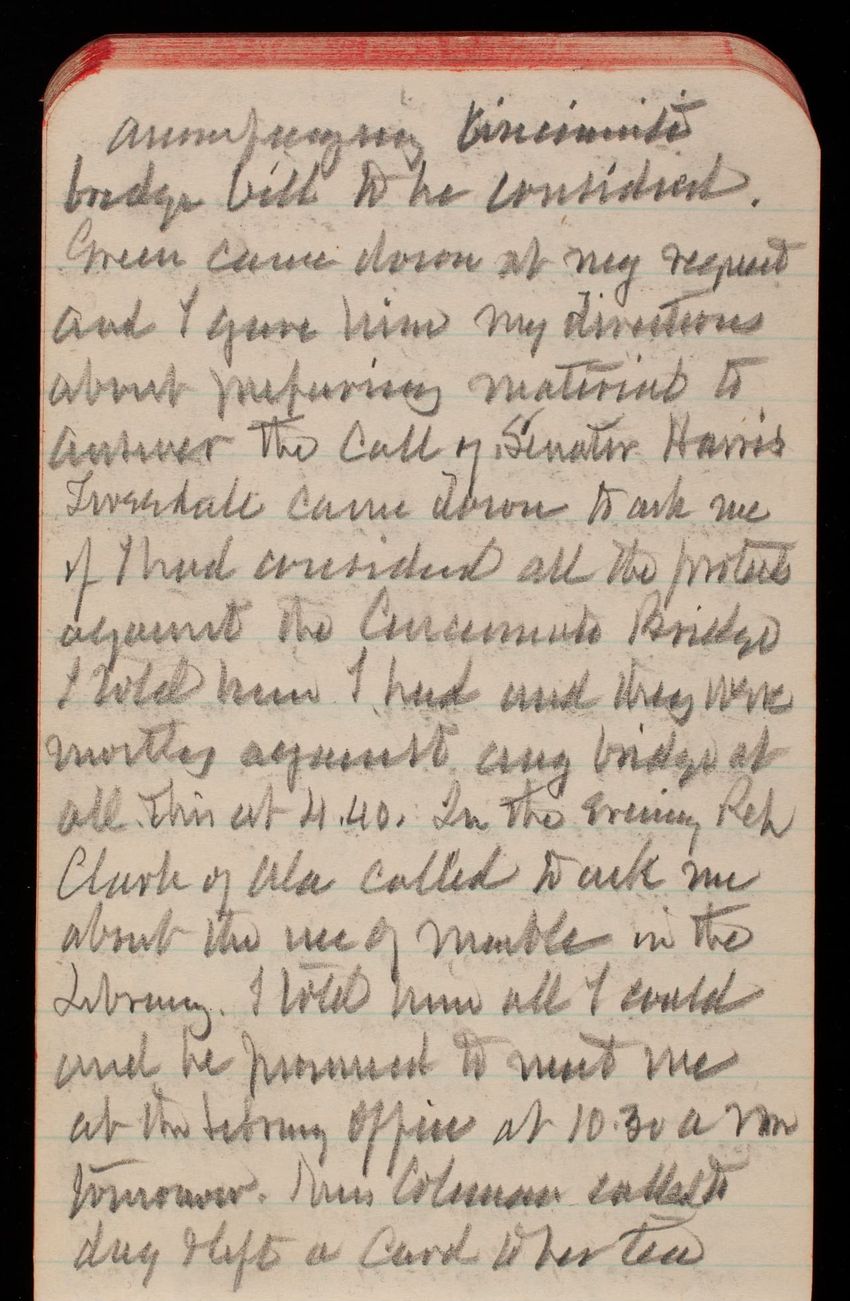 accompanying Cincinnati
bridge bill to be considered.
Green came down at my request
and I gave him my directions
about preparing material to
answer the Call of Senator Harris
Truesdale came down to ask me
if I had considered all the protests
against the Cincinnati Bridge
I told him I had and they were
mostly against any bridge at
all. This at 4.40. In the Evening Rep
Clark of Ala called to ask me
about the use of marble in the
Library. I told him all I could
and he promised to meet me
at the Library Office at 10.30 a m
tomorrow. Coleman called to
day & left a Card to her tea